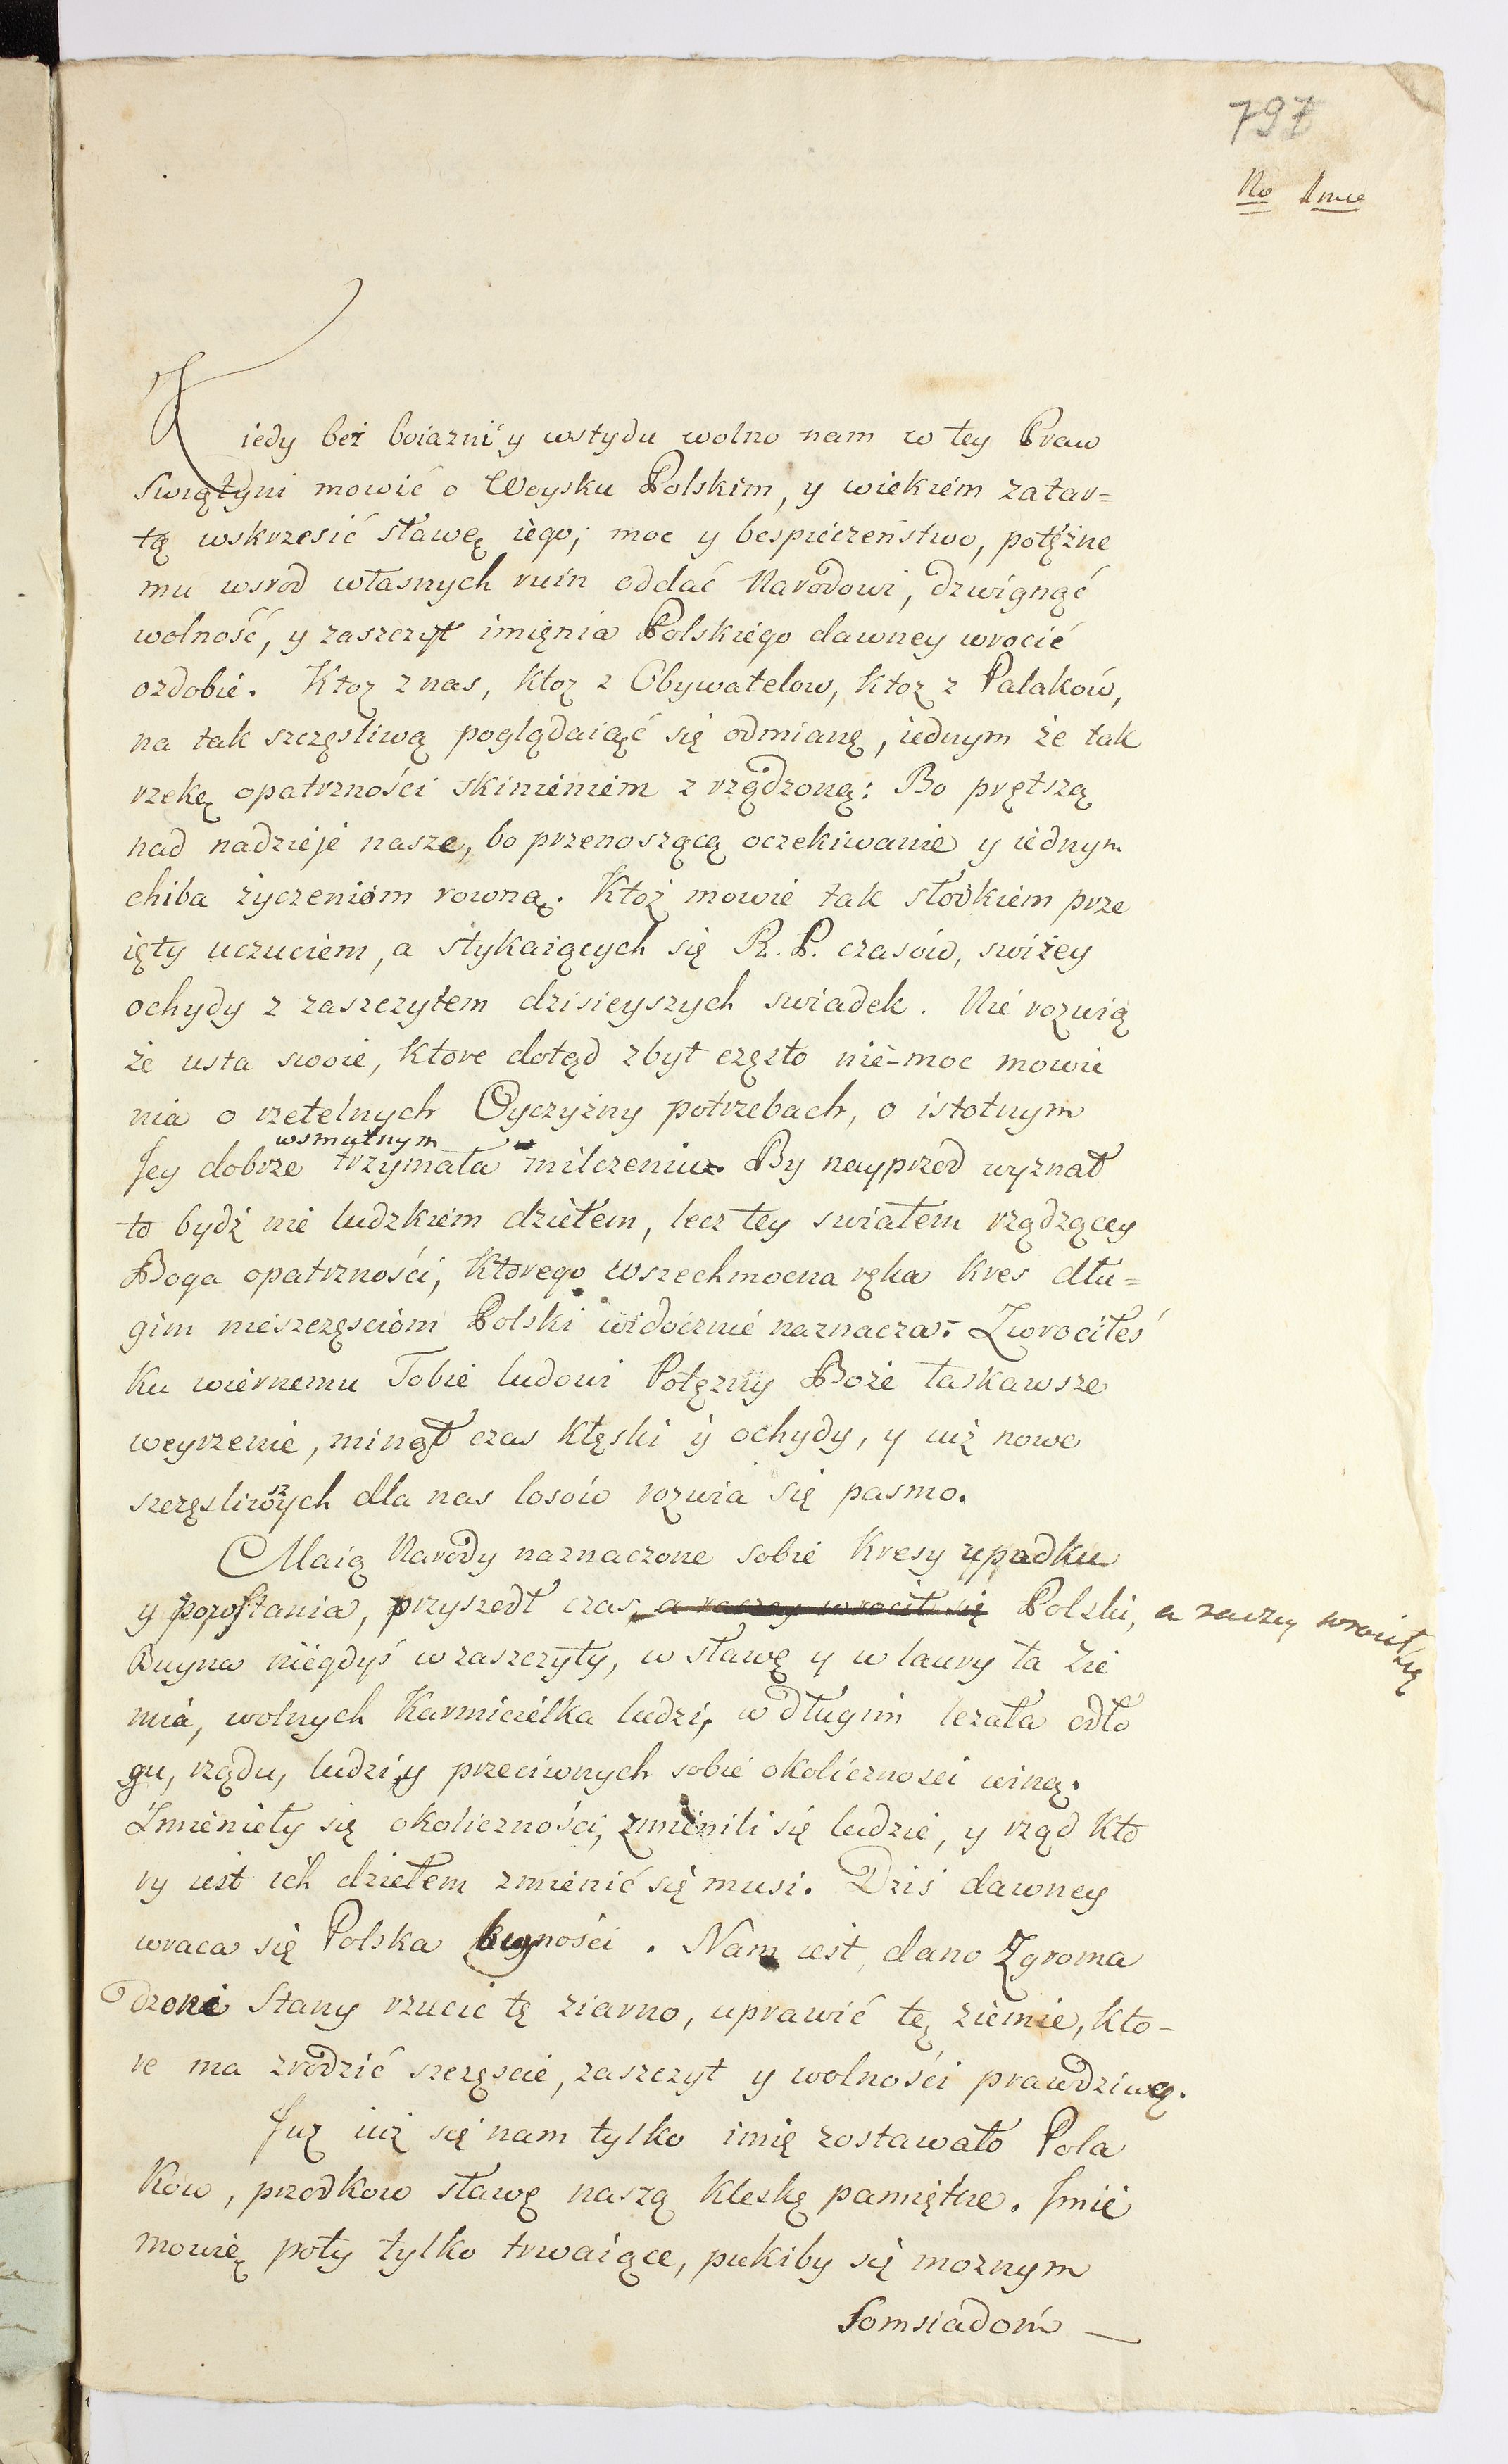 797
No
Kiedy bez boiazni y wstydu wolno nam w tey Praw
Swiątyni mowić o Woysku Polskim, y wiekiem zatar=
tą wskrzesić sławę iego; moc y bespieczeństwo, potężne
mu wsrod własnych ruin oddać Narodowi, dzwignąć
wolność, y zaszczyt imięnia Polskiego dawney wrocić
ozdobie. Ktoz z nas, ktoz z Obywatelow, ktoz z Palaków,
na tak szczęsliwą poglądaiąć się odmianę, iednym że tak
rzekę opatrzności skinieniem z rządzoną: Bo prętszą
nad nadzieje nasze, bo przenoszącą oczekiwanie y iednym
chiba życzeniom rowną. Ktoż mowie tak słodkiem prze
ięty uczuciem, a stykaiących się R. P. czasów, swiżey
ochydy z zaszczytem dzisieyszych swiadek. Nie rozwią
że usta swoie, ktore dotąd zbyt często nie-moc mowie
nia o rzetelnych Oyczyzny potrzebach, o istotnym
Jey dobrze wsmutnym trzymała milczeniu. By nayprzod wyznał
to bydź nie ludzkiem dziełem, lecz tey swiatem rządzącey
Boga opatrzności, ktorego wszechmocna ręka kres dłu=
gim nieszczęsciom Polski widocznie naznacza. Zwrociłeś
ku wiernemu Tobie ludowi Potęzny Boże łaskawsze
weyrzenie, minął czas klęski y ochydy, y iuż nowe
szczęsliwszych dla nas losów rozwia się pasmo.
Maią Narody naznaczone sobie kresy upadku
y powstania, przyszedł czas, a raczey wrocił się Polski, a raczey wrocił się
Buyna niegdyś w zaszczyty, w sławę y w laury ta Zie
mia, wolnych Karmicielka ludzi, w długim lezała odło
gu, rządu, ludzi, y przeciwnych sobie okoliczności winą.
Zmieniely się okoliczności, zmienili się ludzie, y rząd kto
ry iest ich dziełem zmienić się musi. Dziś dawney
wraca się Polska buyności. Nam iest dano Zgroma
dzone Stany rzucic tę ziarno, uprawić tę ziemie, kto-
re ma zrodzić szczęscie, zaszczyt y wolności prawdziwey.
Juz iuż się nam tylko imię zostawało Pola
kow, przodkow sławę naszą kleskę pamiętne. Jmie
mowię poty tylko trwaiące, pukiby się moznym
Somsiadom —